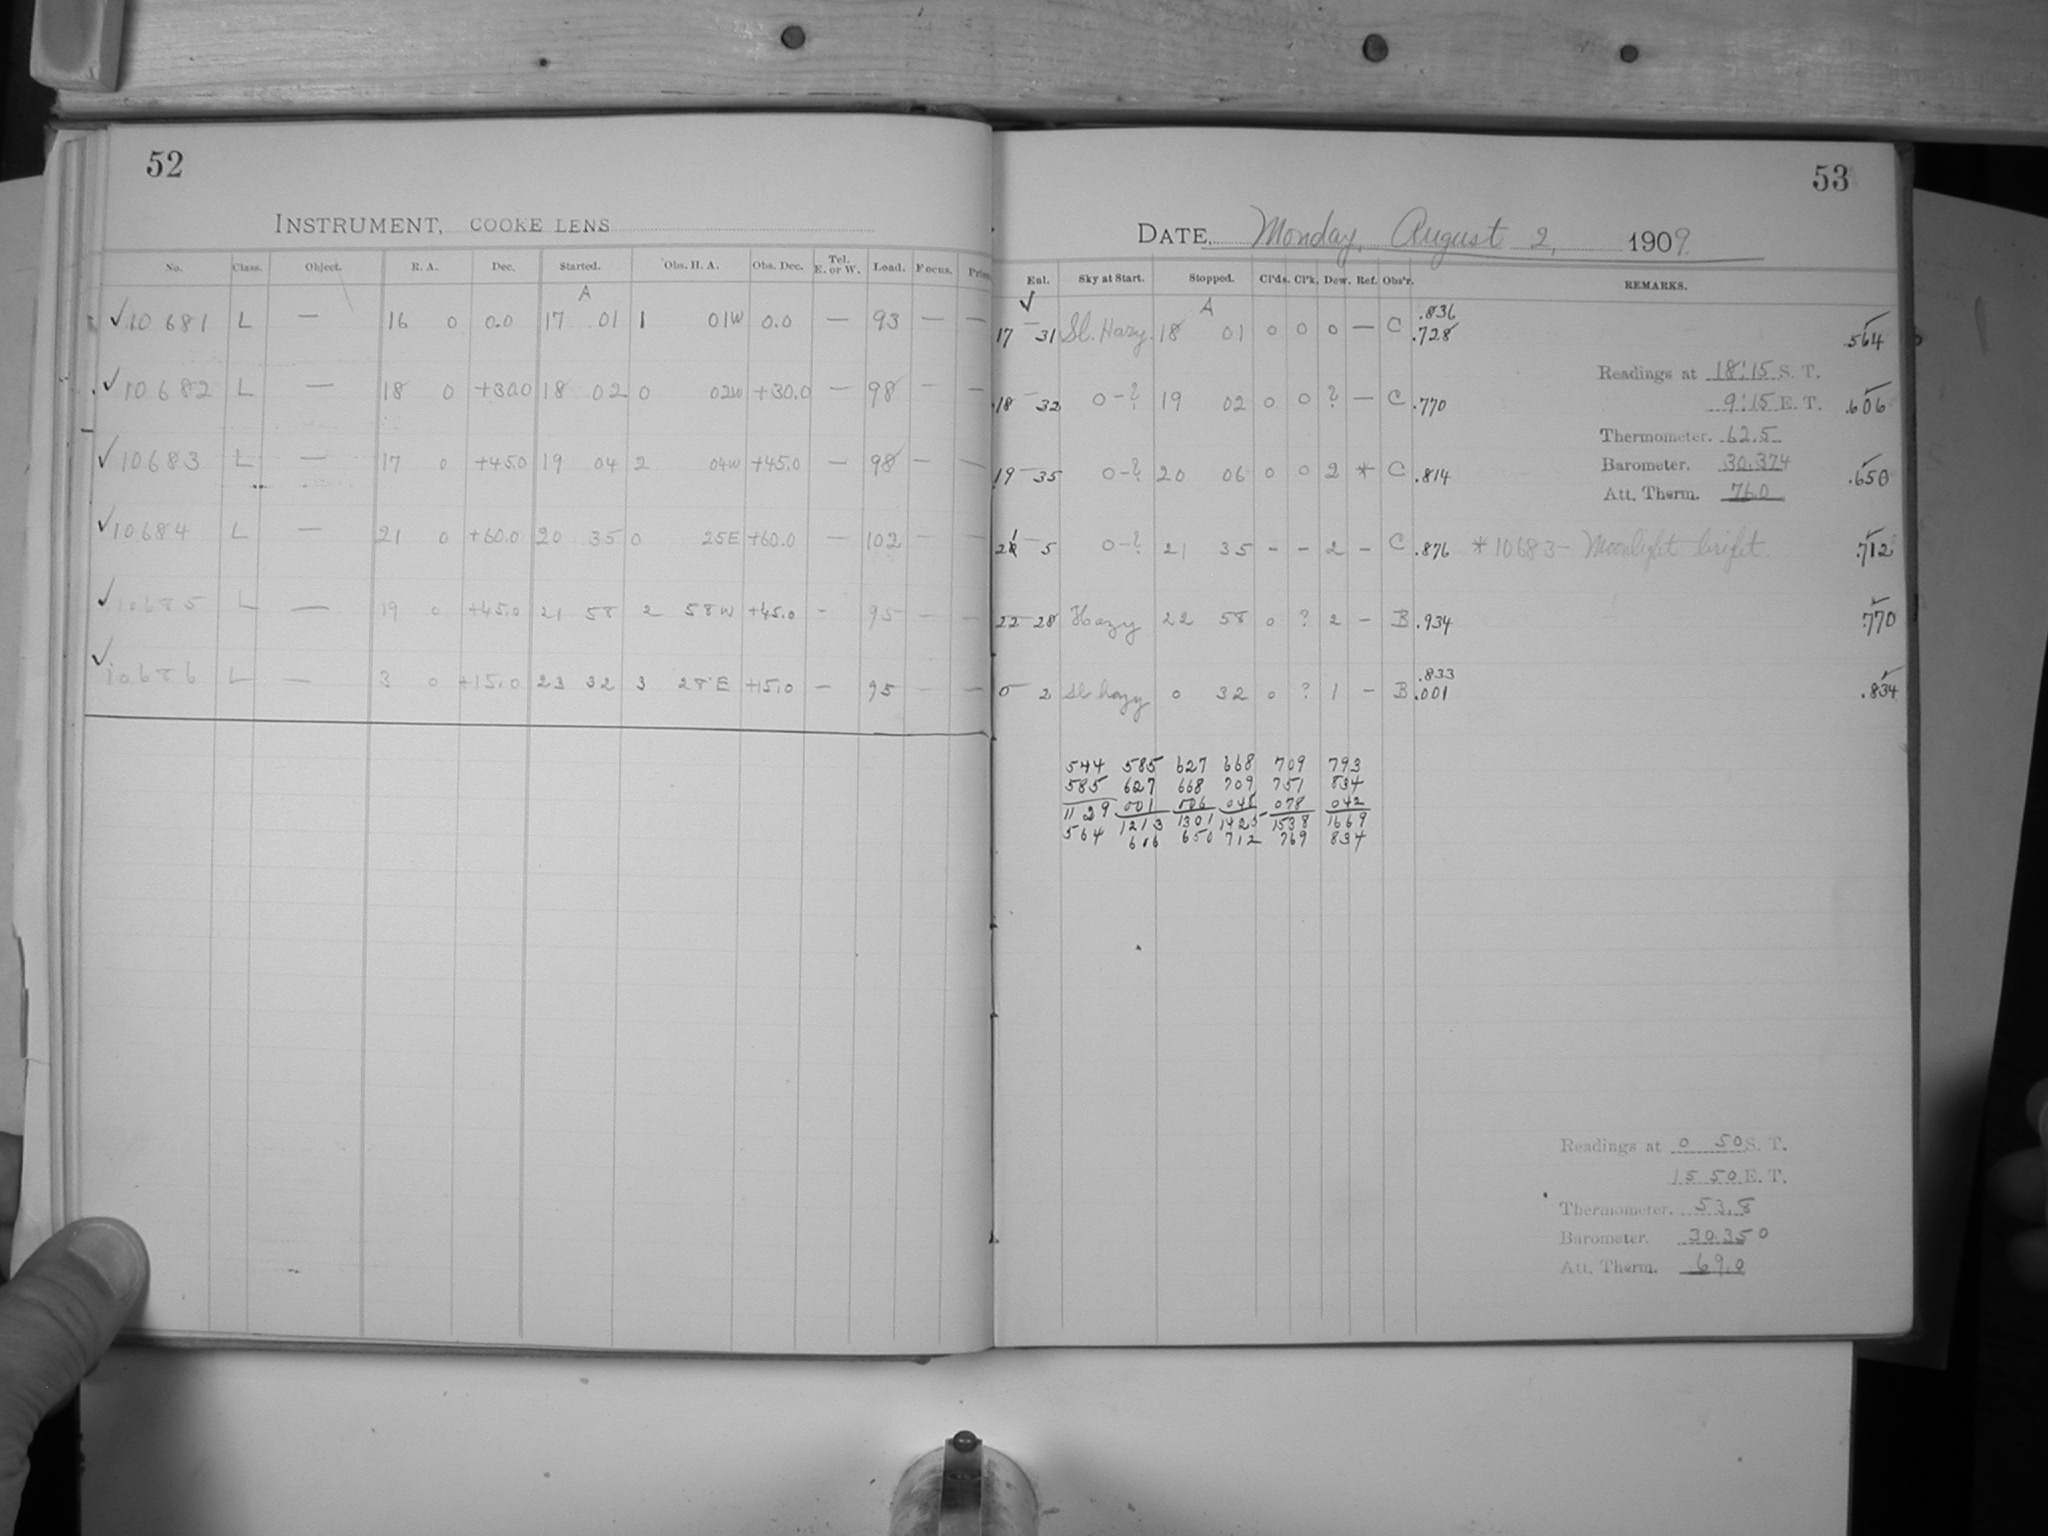 52
INSTRUMENT, COOKE LENS
No. Class. Object. R. A. Dec. Started. Obs. H. A. Obs. Dec. Tel. E. or W. Load. Focus.
A
✓ 10681 L — 16 0 0.0 17 01 1 01W 0.0 — 93 — —
✓ 10682 L — 18 0 +30.0 18 02 0 02W +30.0 — 98 — —
✓ 10683 L — 17 0 +45.0 19 04 2 04W +45.0 — 98 — —
✓ 10684 L — 21 0 +60.0 20 35 0 25E +60.0 — 102 — —
✓ 10685 L — 19 0 +45.0 21 58 2 58W +45.0 - 95 — —
✓ 10686 L — 3 0 +15.0 23 32 3 28E +15.0 — 95 — —
53
DATE, Monday, August 2, 1909
Enl. Sky at Start. Stopped. Cl'ds. Cl'k. Dew. Ref. Obs'r. REMARKS.
✓ A .836
17 31 Sl. Hazy 18 01 0 0 0 — C .728 .564
Readings at 18:15 S. T.
18 32 0-? 19 02 0 0 ? — C .770 9:15 E. T. .606
Thermometer. 62.5
19 35 0-? 20 06 0 0 2 * C .814 Barometer. 30.374 .650
Att. Therm. 76.0
21 5 0-? 21 35 - - 2 - C .876 *10683- Moonlight bright .712
22 28 Hazy 22 58 0 ? 2 - B .934 .770
.833
0 2 Sl. hazy 0 32 0 ? 1 - B .001 .834
544 585 627 668 709 793
585 627 668 709 751 834
001 006 048 078 042
1129 1213 1301 1425 1538 1669
564 606 650 712 769 834
Readings at 0 50 S. T.
15 50 E. T.
Thermometer. 53.8
Barometer. 30.350
Att. Therm. 69.0